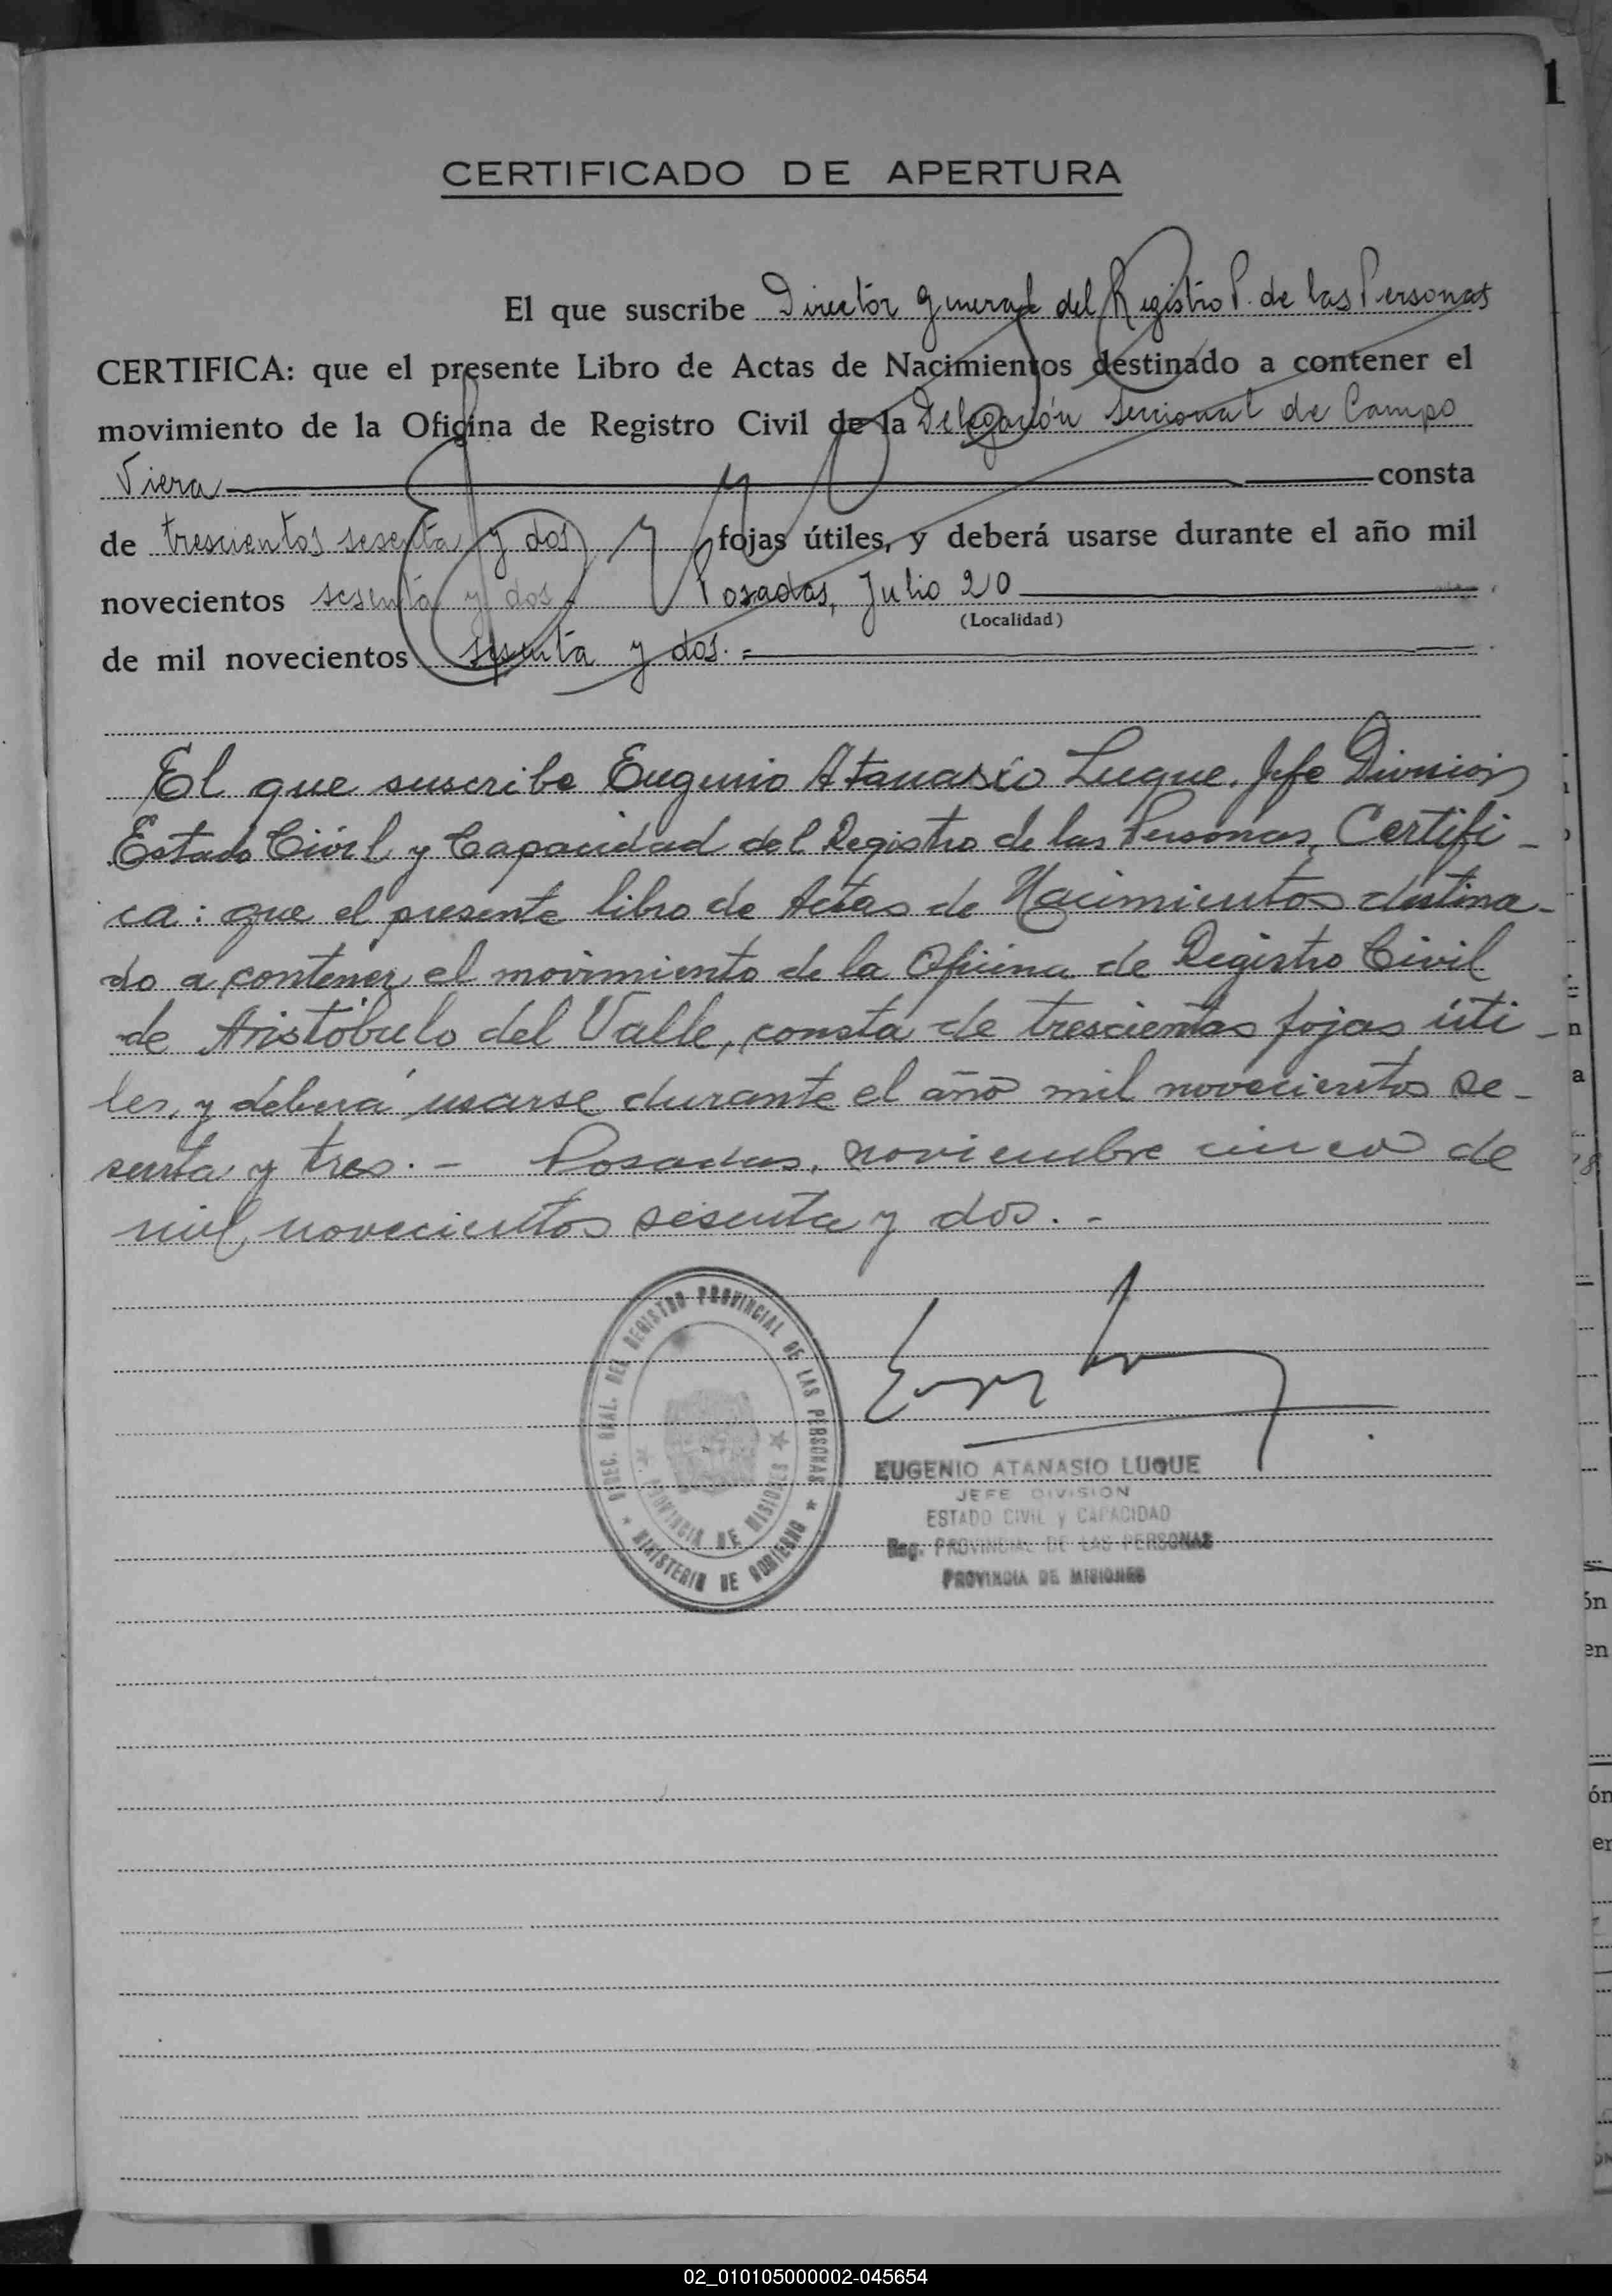 1
CERTIFICADO DE APERTURA
El que suscribe Director General del Registro P. de las Personas
CERTIFICA: que el presente Libro de Actas de Nacimientos destinado a contener el
movimiento de la Oficina de Registro Civil de la Delegación Seccional de Campo
Viera consta
de trescientos sesenta y dos fojas útiles, y deberá usarse durante el año mil
novecientos sesenta y dos. Posadas, Julio 20
(Localidad)
de mil novecientos sesenta y dos. =
El que suscribe Eugenio Atanasio Luque, Jefe División
Estado Civil y Capacidad del Registro de las Personas, Certifi-
ca: que el presente libro de Actas de Nacimientos destina-
do a contener el movimiento de la Oficina de Registro Civil
de Aristóbulo del Valle, consta de trescientas fojas úti-
les, y deberá usarse durante el año mil novecientos se-
senta y tres. - Posadas, noviembre cinco de
mil novecientos sesenta y dos. -
DIREC. GRAL. DEL REGISTRO PROVINCIAL DE LAS PERSONAS
PROVINCIA DE MISIONES
MINISTERIO DE GOBIERNO
EUGENIO ATANASIO LUQUE
JEFE DIVISION
ESTADO CIVIL y CAPACIDAD
Reg. PROVINCIAL DE LAS PERSONAS
PROVINCIA DE MISIONES
02_010105000002-045654